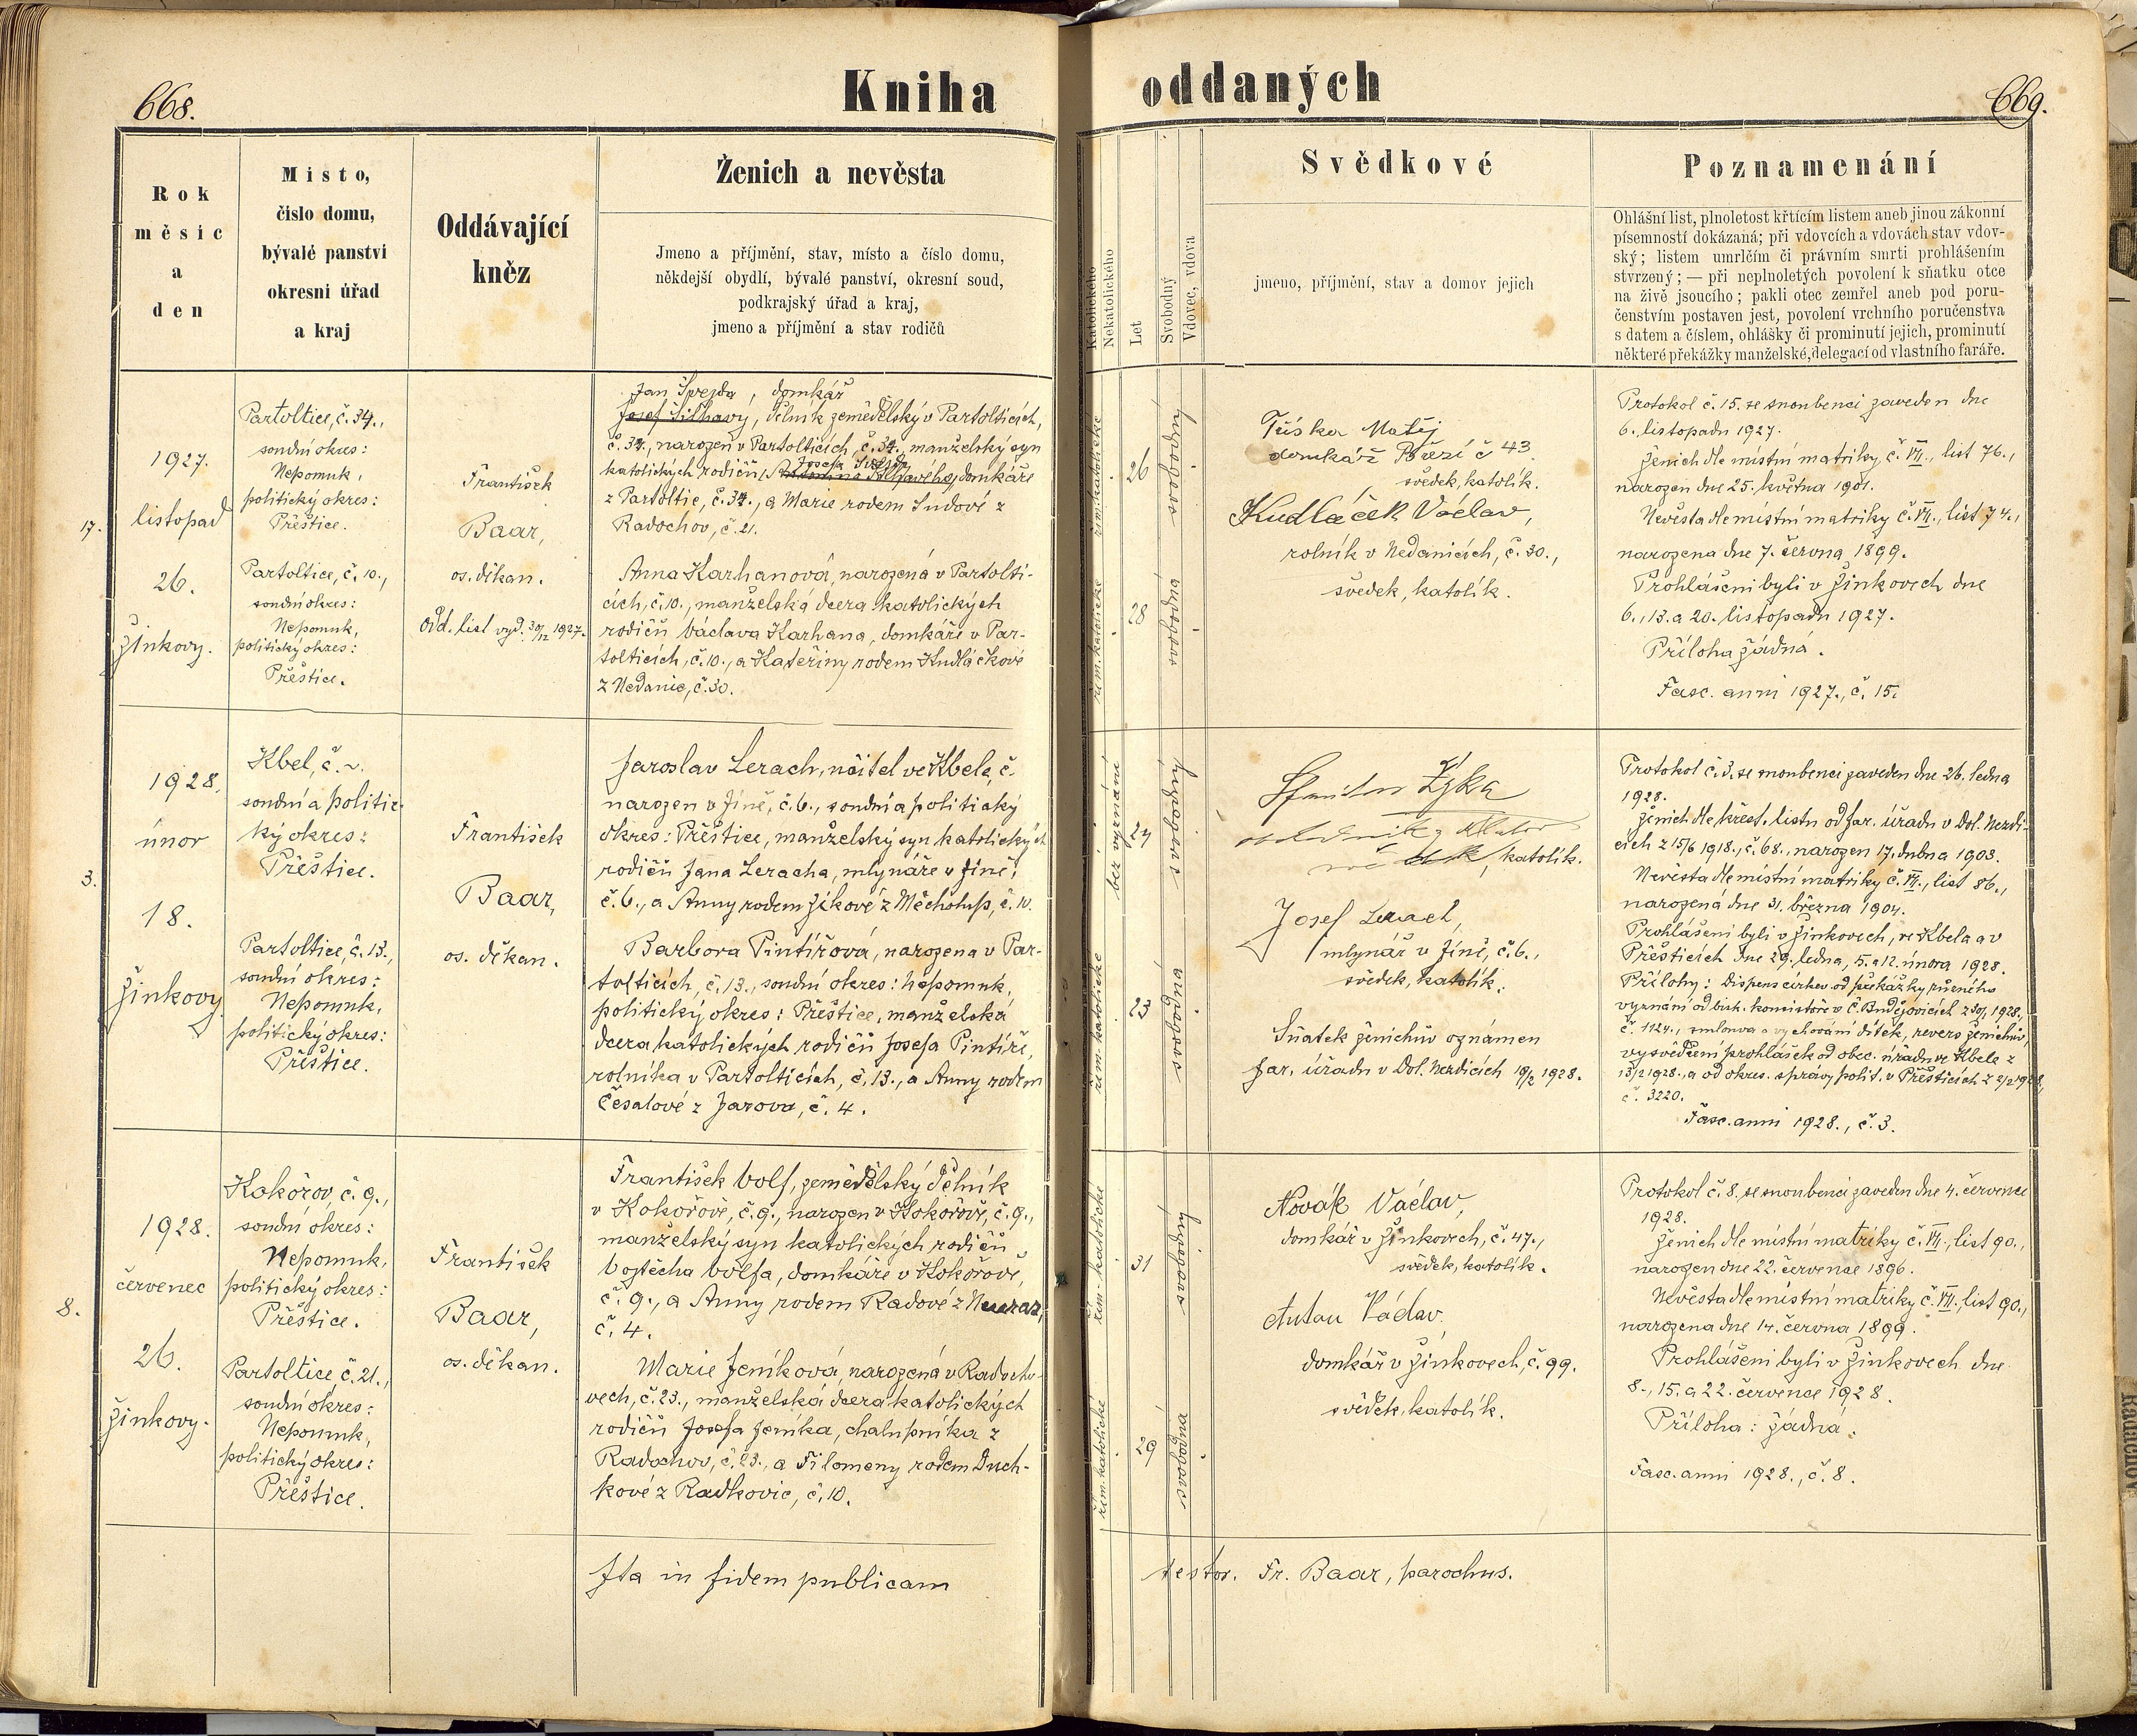 668.
Kniha
oddaných
669.
Rok
měsíc
a
den
Místo,
číslo domu,
bývalé panství
okresní úřad
a kraj
Oddávající
kněz
Ženich a nevěsta
Jmeno a příjmění, stav, místo a číslo domu,
někdejší obydlí, bývalé panství, okresní soud,
podkrajský úřad a kraj,
jmeno a příjmění a stav rodičů
Katolického
Nekatolického
Let
Svobodný
Vdovec, vdova
Svědkové
jmeno, příjmění, stav a domov jejich
Poznamenání
Ohlášní list, plnoletost křtícím listem aneb jinou zákonní
písemností dokázaná; při vdovcích a vdovách stav vdov-
ský; listem umrlčím či právním smrti prohlášením
stvrzený; — při neplnoletých povolení k sňatku otce
na živě jsoucího; pakli otec zemřel aneb pod poru-
čenstvím postaven jest, povolení vrchního poručenstva
s datem a číslem, ohlášky či prominutí jejich, prominutí
některé překážky manželské, delegací od vlastního faráře.
17.
1927.
listopad
26.
Žinkovy.
Partoltice, č. 34.,
soudní okres:
Nepomuk,
politický okres:
Přeštice.
Partoltice, č. 10.,
soudní okres:
Nepomuk,
politický okres:
Přeštice.
František
Baar,
os. děkan.
Odd. list vyd. 30/12 1927.
Jan Švejda, domkář
Josef Šilhavy, dělník zemědělský v Partolticích,
č. 34., narozen v Partolticích, č. 34., manželský syn
katolických rodičů, Josefa Švejdy, domkáře
z Partoltic, č. 34., a Marie rodem Sudové z
Radochov, č. 21.
Anna Karhanová, narozená v Partolti-
cích, č. 10., manželská dcera katolických
rodičů Václava Karhana, domkáře v Par-
tolticích, č. 10., a Kateřiny rodem Kudláčkové
z Nedanic, č. 30.
řím. katolické
26
svobodný
řím. katolické
28
svobodná
Tüska Matěj
domkář Březí č 43.
svědek, katolík.
Kudláček Václav,
rolník v Nedanicích, č. 30.,
svědek, katolík.
Protokol č. 15. se snoubenci zaveden dne
6. listopadu 1927.
Ženich dle místní matriky, č. VII., list 76.,
narozen dne 25. května 1901.
Nevěsta dle místní matriky č. VII., list 74.,
narozena dne 7. června 1899.
Prohlášeni byli v Žinkovech dne
6., 13. a 20. listopadu 1927.
Příloha žádná.
Fasc. anni 1927., č. 15.
3.
1928.
únor
18.
Žinkovy
Kbel, č.
soudní a politic-
ký okres:
Přeštice.
Partoltice, č. 13.,
soudní okres:
Nepomuk,
politický okres:
Přeštice.
František
Baar,
os. děkan.
Jaroslav Lerach, učitel ve Kbele, č.
narozen v Jíně, č. 6., soudní a politický
okres: Přeštice, manželský syn katolických
rodičů Jana Leracha, mlynáře v Jíně,
č. 6., a Anny rodem Zikové z Měcholup, č. 10.
Barbora Pintířová, narozena v Par-
tolticích, č. 13., soudní okres: Nepomuk,
politický okres: Přeštice, manželská
dcera katolických rodičů Josefa Pintíře,
rolníka v Partolticích, č. 13., a Anny rodem
Česalové z Jarova, č. 4.
bez vyznání
24
svobodný
řím. katolické
23
svobodná
Zyka
katolík.
Josef Lerach,
mlynář v Jíně, č. 6.,
svědek, katolík.
Sňatek ženichův oznámen
far. úřadu v Dol. Nezdicích 19/2 1928.
Protokol č. 3. se snoubenci zaveden dne 26. ledna
1928.
Ženich dle křest. listu od far. úřadu v Dol. Nezdi-
cích z 15/6 1918., č. 68., narozen 17. dubna 1903.
Nevěsta dle místní matriky č. VII., list 86.,
narozena dne 31. března 1904.
Prohlášeni byli v Žinkovech, ve Kbele a v
Přešticích dne 29. ledna, 5. a 12. února 1928.
Přílohy: Dispens církev. od překážky různého
vyznání od bisk. konsistoře v Č. Budějovicích z 30/1 1928.,
č. 1124., smlouva o vychování dítek, revers ženichův,
vysvědčení prohlášek od obec. úřadu ve Kbele z
13/2 1928., a od okres. správy polit. v Přešticích z 2/2 1928,
č. 3220.
Fasc. anni 1928., č. 3.
8.
1928.
červenec
26.
Žinkovy.
Kokořov, č. 9.,
soudní okres:
Nepomuk,
politický okres:
Přeštice.
Partoltice č. 21.,
soudní okres:
Nepomuk,
politický okres:
Přeštice.
František
Baar,
os. děkan.
František Volf, zemědělský dělník
v Kokořově, č. 9., narozen v Kokořově, č. 9.,
manželský syn katolických rodičů
Vojtěcha Volfa, domkáře v Kokořově,
č. 9., a Anny rodem Radové z Neuraz,
č. 4.
Marie Jeníková, narozená v Radocho-
vech, č. 23., manželská dcera katolických
rodičů Josefa Jeníka, chalupníka z
Radochov, č. 23., a Filomeny rodem Duch-
kové z Radkovic, č. 10.
řím. katolické
31
svobodný
řím. katolické
29
svobodná
Novák Václav,
domkář v Žinkovech, č. 47.,
svědek, katolík.
Autau Václav
domkář v Žinkovech, č. 99.
svědek, katolík.
Protokol č. 8. se snoubenci zaveden dne 4. července
1928.
Ženich dle místní matriky č. VII., list 90.,
narozen dne 22. července 1896.
Nevěsta dle místní matriky č. VII., list 90.,
narozena dne 14. června 1899.
Prohlášeni byli v Žinkovech dne
8., 15. a 22. července 1928.
Příloha: žádná.
Fasc. anni 1928., č. 8.
Ita in fidem publicam
testor. Fr. Baar, parochus.